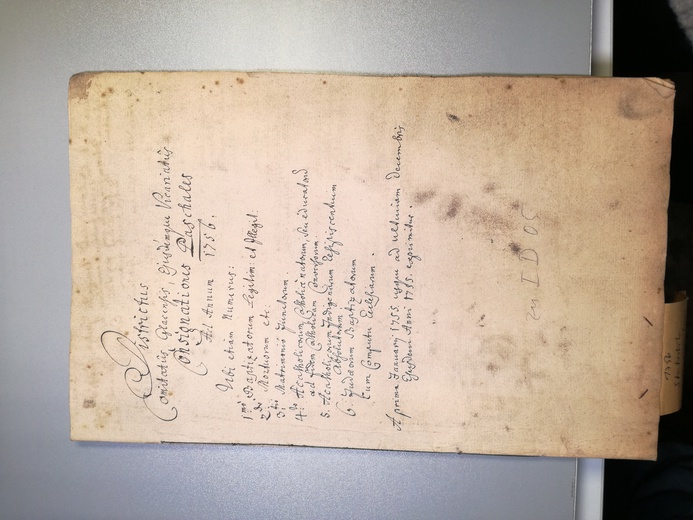 Districtus
Comitatus Glacensis, Ejusdemque Vicariatus
Consignationes Paschales
Ad Annum 1756.
Ubi etiam Numerus:
1mo Baptizatorum Legitim: et Illegit.
2do Mortuorum etc.
3tio Matrimonio Junctorum.
4to Acatholicorum, Catholice natorum, seu educatorum
ad fidem Catholicam Conversorum.
5. Acatholicorum Indigenarum
Absolutorum
6. Judaeorum Baptizatorum
Cum Computu Ecclesiarum.
A prima January 1755. usque ad ultimam Decembris
Ejusdem Anni 1755. exprimitur.
ID 05